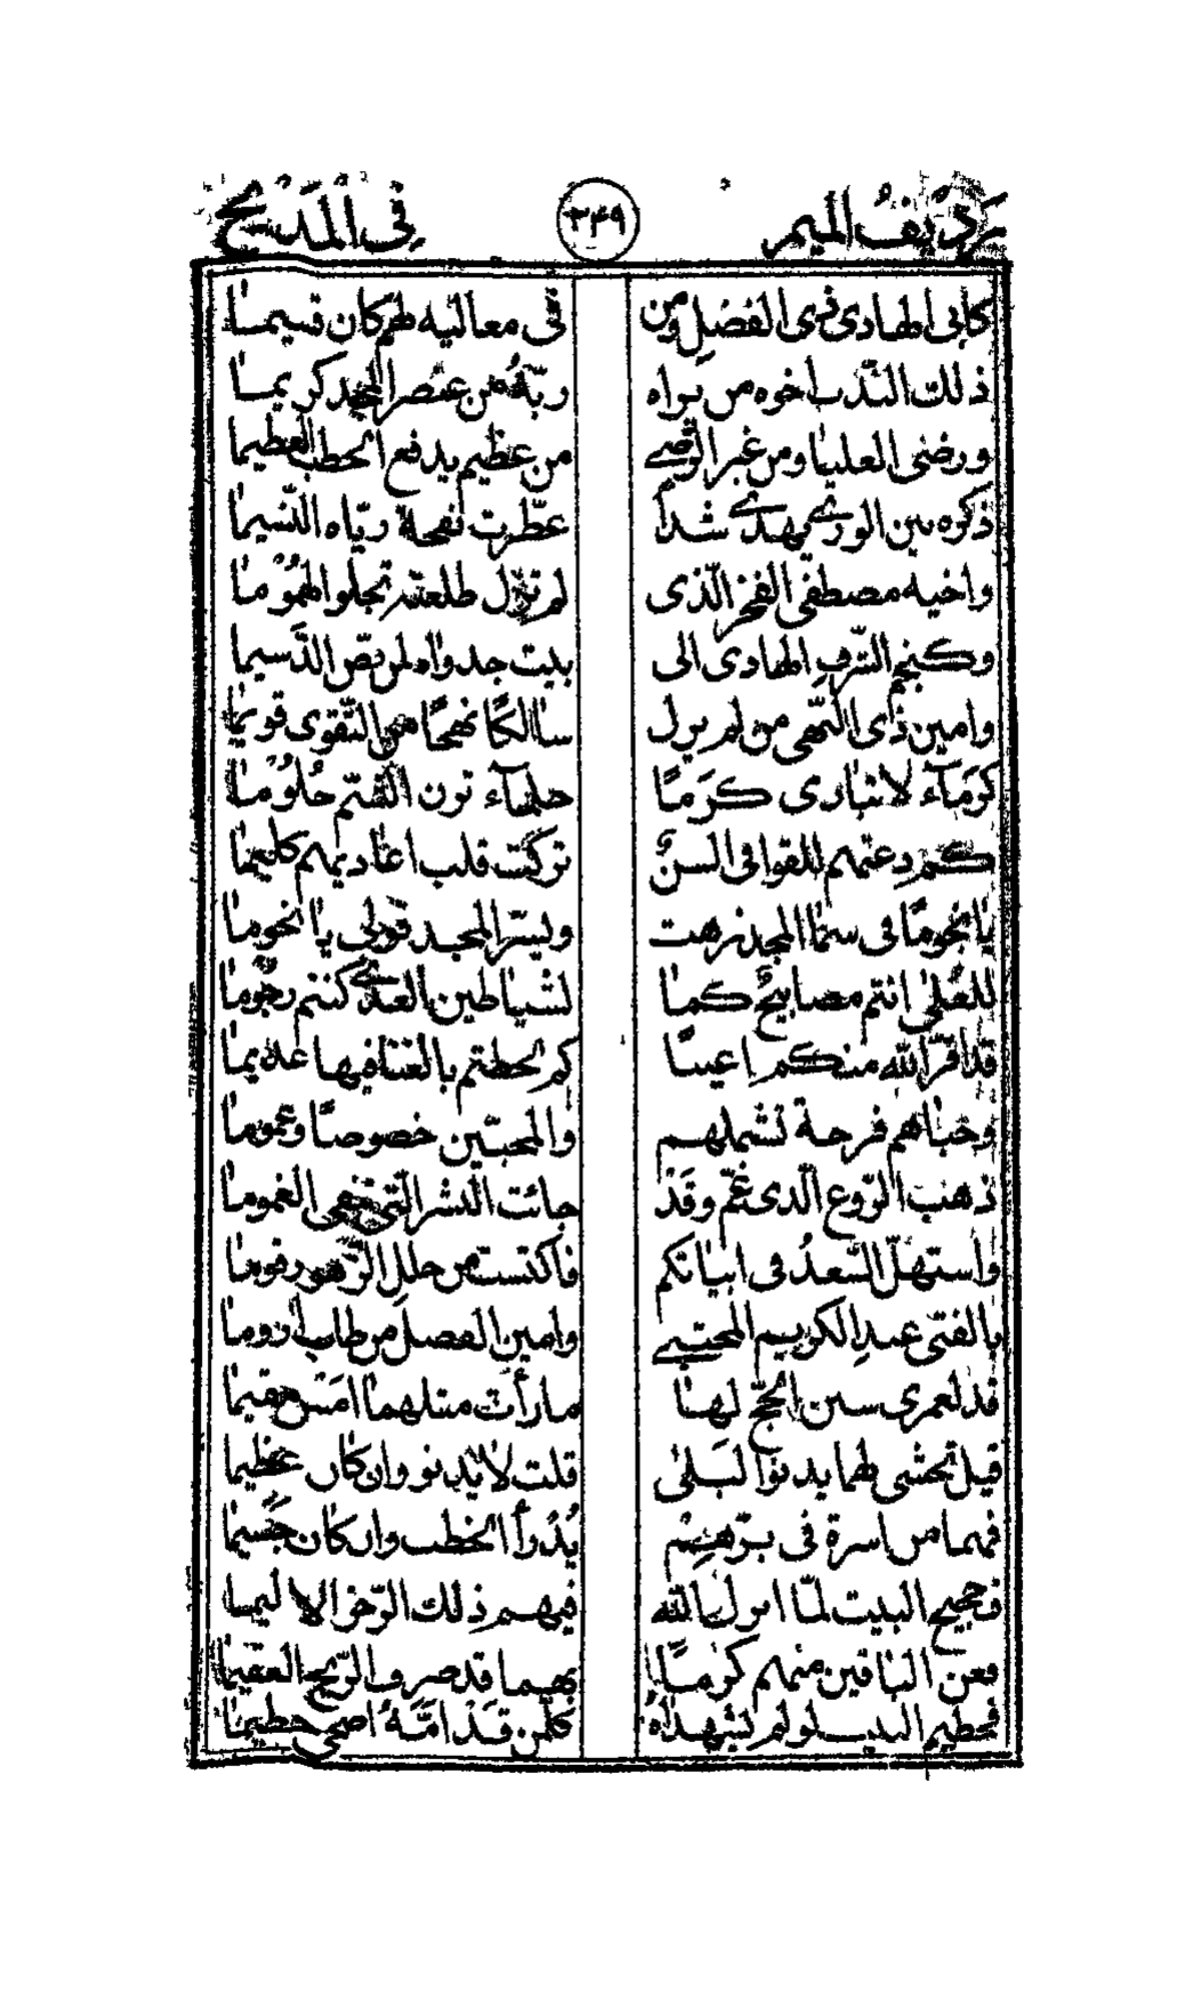 رديف الميم ٢٤٩ في المديح
كابى الهادى ذى الفضل ومن في معاليه لهم كان قسيما
ذلك الندب اخوه من براه ربّه من عنصر المجد كريما
ورضى العليا ومن غير الرّضى من عظيم يدفع الخطب العظيما
ذكره بين الورى يهدى شذا عطّرت نفحة ريّاه النّسيما
واخيه مصطفى الفخر الّذى لم تزل طلعته تجلوا الهُمُوما
وكنجم الشّرف الهادى الى بيت جدواه لمن
وامين ذى النّهى من لم يزل سالكًا نهجًا من التّقوى قويما
كرَمآء لا تبارى كرَمًا حلمآء تزن الشمّ حُلُوما
كم دعتهم للقوافى السنٌ تركت قلب اعاديهم كليما
يا نجومًا فى سما المجد زهت وليسرّ المجد قولى يا نجوما
للعُلى انتم مصابيحٌ كما لشياطين العدى كنتم رجُوما
قد اقرّ الله منكم اعينًا كم لحظتم بالغنا فيها عديما
وحباهم فرحة تشملهم والمحبّين خصوصًا وعموما
ذهب الرّوع الّذى غمّ وقد جائت البشر الّتى تنفى الغموما
واستهلّ السّعدُ فى ابياتكم فاكتست من حلل الزّهو رقوما
بالفتى عبدِ الكريم المجتبى وامين الفضل من طاب اروما
قد لعمرى سن الحجّ لها ما رأت مثلهما امسى مقيما
قيل تخشى لهما يدنوا البَلى قلت لا يدنو وان كان عظيما
فهما من اسرة فى برّهم يُدْرأ الخطب وان كان جَسيما
فحجيج البيت لمّا انزل الله فيهم ذلك الرّجز الاليما
فعن الباقين منهم كرمًا بهما قد صرف الرّيح العقيما
فحطيم البيت لو لم تشهداه كلّ من قد امَّهُ اضحى حطيما